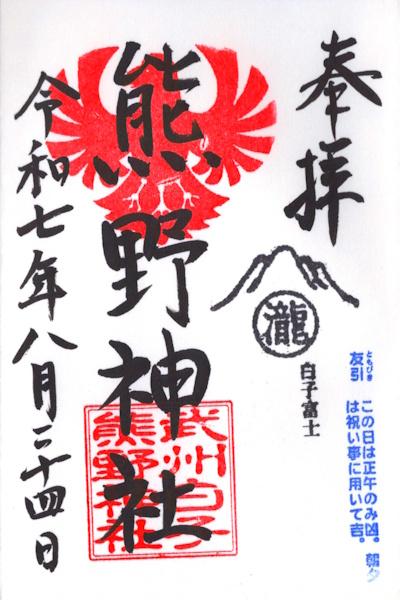 奉拝
瀧
白子富士
ともびき
友引 この日は正午のみ凶。朝夕
は祝い事に用いて吉。
熊野神社
武州白子
熊野神社
令和七年八月二十四日